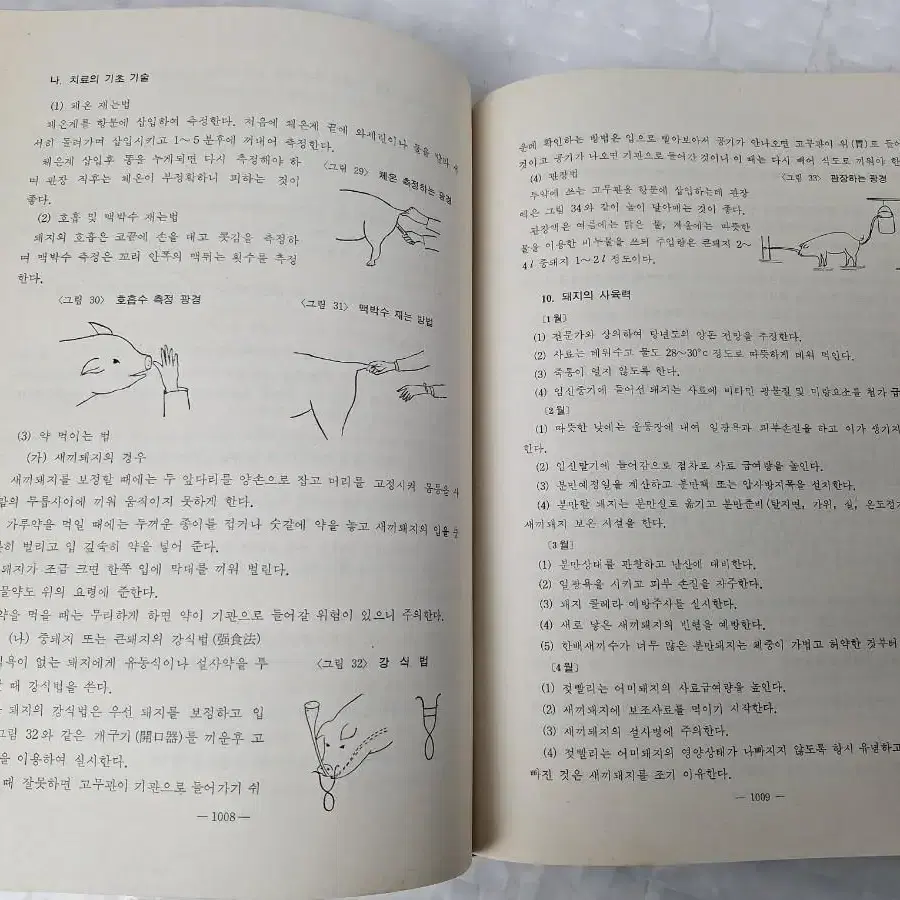 나. 치료의 기초 기술
(1) 체온 재는법
체온계를 항문에 삽입하여 측정한다. 처음에 체온계 끝에 와세린이나 물을 발라 서
서히 돌려가며 삽입시키고 1～5분후에 꺼내어 측정한다.
체온계 삽입후 똥을 누게되면 다시 측정해야 하
며 관장 직후는 체온이 부정확하니 피하는 것이
좋다.
〈그림 29〉 체온 측정하는 광경
(2) 호흡 및 맥박수 재는법
돼지의 호흡은 코끝에 손을 대고 콧김을 측정하
며 맥박수 측정은 꼬리 안쪽의 맥뛰는 횟수를 측정
한다.
〈그림 30〉 호흡수 측정 광경
〈그림 31〉 맥박수 재는 방법
(3) 약 먹이는 법
(가) 새끼돼지의 경우
새끼돼지를 보정할 때에는 두 앞다리를 양손으로 잡고 머리를 고정시켜 몸통을 사
람의 무릎사이에 끼워 움직이지 못하게 한다.
가루약을 먹일 때에는 두꺼운 종이를 접거나 숟갈에 약을 놓고 새끼돼지의 입을
히 벌리고 입 깊숙히 약을 넣어 준다.
돼지가 조금 크면 한쪽 입에 막대를 끼워 벌린다.
물약도 위의 요령에 준한다.
약을 먹을 때는 무리하게 하면 약이 기관으로 들어갈 위험이 있으니 주의한다.
(나) 중돼지 또는 큰돼지의 강식법(強食法)
식욕이 없는 돼지에게 유동식이나 설사약을 투
때 강식법을 쓴다.
〈그림 32〉 강 식 법
돼지의 강식법은 우선 돼지를 보정하고 입
그림 32와 같은 개구기(開口器)를 끼운후 고
을 이용하여 실시한다.
때 잘못하면 고무관이 기관으로 들어가기 쉬
— 1008 —
운데 확인하는 방법은 입으로 빨아보아서 공기가 안나오면 고무관이 위(胃)로 들어
것이고 공기가 나오면 기관으로 들어간 것이니 이 때는 다시 빼어 식도로 끼워야 한
(4) 관장법
〈그림 33〉 관장하는 광경
투약에 쓰는 고무관을 항문에 삽입하는데 관장
때은 그림 34와 같이 높이 달아매는 것이 좋다.
관장액은 여름에는 맑은 물, 겨울에는 따뜻한
물을 이용한 비누물을 쓰되 주입량은 큰돼지 2～
4l 중돼지 1～2l 정도이다.
10. 돼지의 사육력
〔1월〕
(1) 전문가와 상의하여 당년도의 양돈 전망을 추정한다.
(2) 사료는 데워주고 물도 28～30°c 정도로 따뜻하게 데워 먹인다.
(3) 죽통이 얼지 않도록 한다.
(4) 임신중기에 들어선 돼지는 사료에 비타민 광물질 및 미량요소를 첨가 급
〔2월〕
(1) 따뜻한 낮에는 운동장에 내여 일광욕과 피부손질을 하고 이가 생기지
한다.
(2) 임신말기에 들어감으로 점차로 사료 급여량을 높인다.
(3) 분만예정일을 계산하고 분만책 또는 압사방지목을 설치한다.
(4) 분만할 돼지는 분만실로 옮기고 분만준비(탈지면, 가위, 실, 온도
새끼돼지 보온 시설을 한다.
〔3월〕
(1) 분만상태를 관찰하고 난산에 대비한다.
(2) 일광욕을 시키고 피부 손질을 자주한다.
(3) 돼지 콜레라 예방주사를 실시한다.
(4) 새로 낳은 새끼돼지의 빈혈을 예방한다.
(5) 한배새끼수가 너무 많은 분만돼지는 체중이 가볍고 허약한 것부터
〔4월〕
(1) 젖빨리는 어미돼지의 사료급여량을 높인다.
(2) 새끼돼지에 보조사료를 먹이기 시작한다.
(3) 새끼돼지의 설사병에 주의한다.
(4) 젖빨리는 어미돼지의 영양상태가 나빠지지 않도록 항시 유념하고
빠진 것은 새끼돼지를 조기 이유한다.
— 1009 —